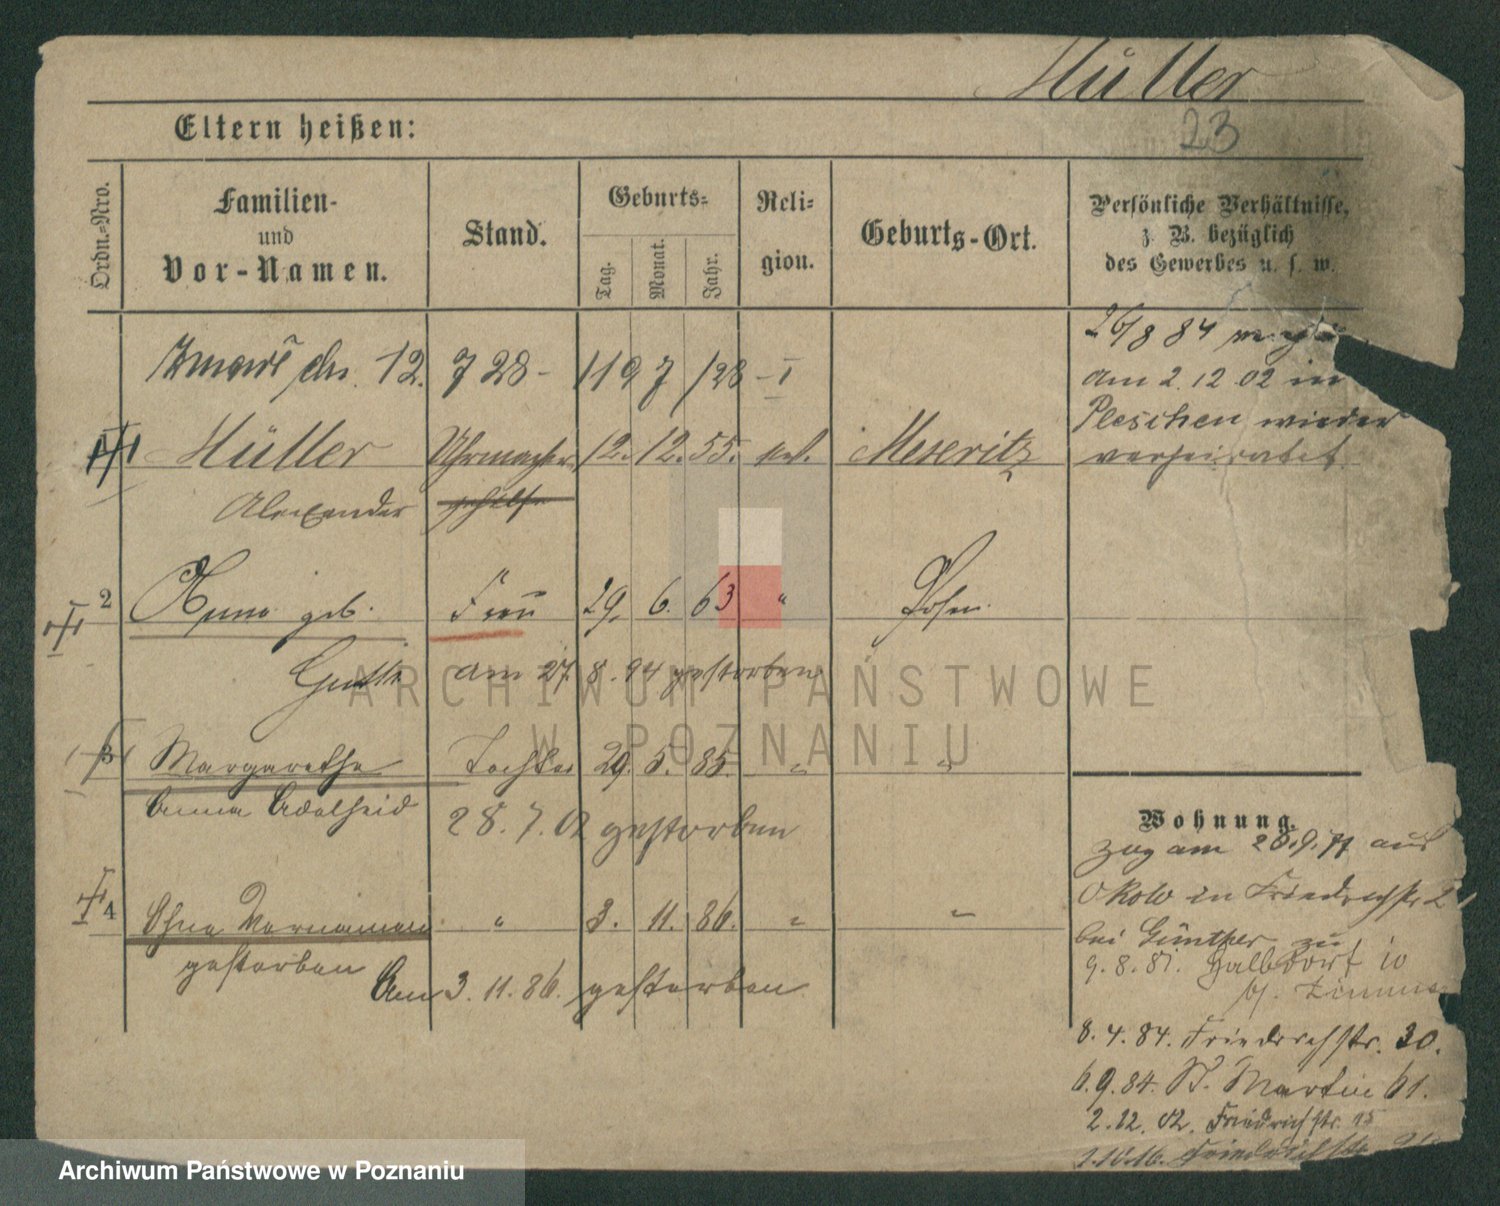 Müller
23
Eltern heißen:
Ordn.-Nro.
Familien-
und
Vor-Namen.
Stand.
Geburts-
Tag.
Monat.
Jahr.
Reli-
gion.
Geburts-Ort.
Persönliche Verhältnisse,
z. B. bezüglich
des Gewerbes u. s. w.
12. 7 28 - 119 7/28 - I
26/8 84
am 2.12 02 in
Pleschen wieder
verheiratet
1 Müller Uhrmacher 12. 12. 55. Meseritz
Alexander gehilfe
2 Anna geb. Frau 29. 6. 63 " Posen
am 27. 8. 94 gestorben
ARCHIWUM PAŃSTWOWE
W POZNANIU
3 Margarethe Tochter 29. 5. 85. " "
Anna Adelheid 28. 7. 01 gestorben
4 Ohne Vornamen " 3. 11. 86. " "
gestorben Am 3. 11. 86. gestorben
Wohnung.
zog am 28.9.77 aus
in Friedrichstr.
bei Günther zu
9.8.81. Halbdorf 10
b/.
8.4.84. Friedrichstr. 30.
6.9.84. St. Martin 61.
2.12.02. Friedrichstr. 15
1.10.16. Friedrichstr.
Archiwum Państwowe w Poznaniu